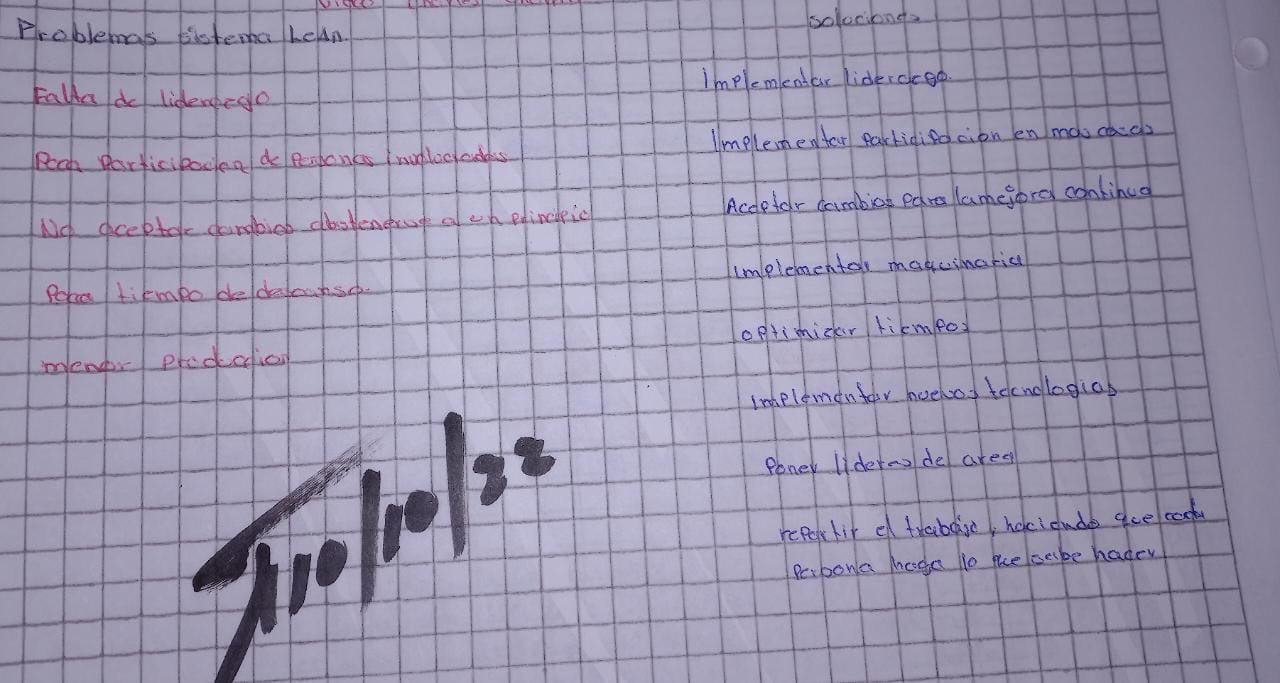 Problemas sistema Lean
Falta de liderazgo
Poca Participacion de Personas involucradas
No aceptar cambios abstenerse a un principio
Poco tiempo de descanso.
menor Produccion
soluciones
implementar liderazgo.
Implementar participacion en mas
Aceptar cambios para la mejora continua
implementar maquinaria
optimizar tiempos
implementar nuevas tecnologias
Poner lideres de area
repartir el trabajo, haciendo que cada
Persona haga lo que sabe hacer
10/10/22